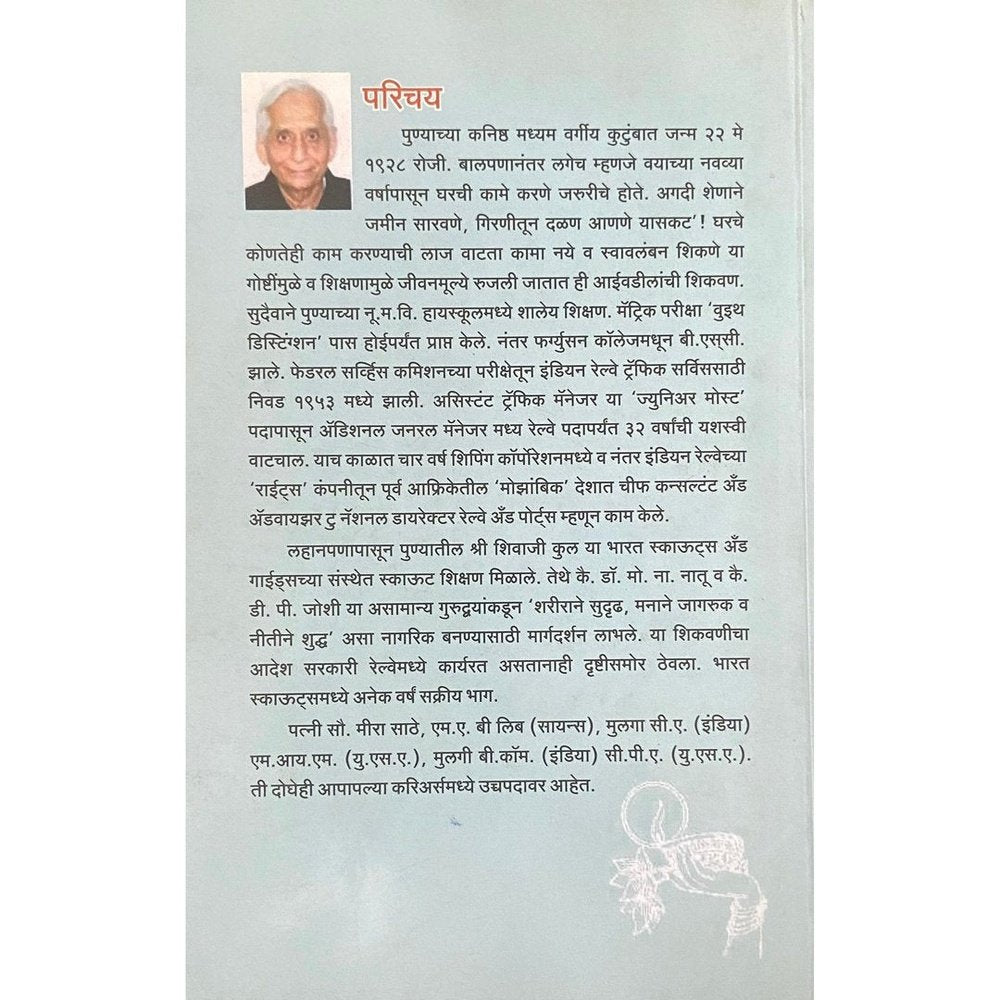 परिचय
पुण्याच्या कनिष्ठ मध्यम वर्गीय कुटुंबात जन्म २२ मे
१९२८ रोजी. बालपणानंतर लगेच म्हणजे वयाच्या नवव्या
वर्षापासून घरची कामे करणे जरुरीचे होते. अगदी शेणाने
जमीन सारवणे, गिरणीतून दळण आणणे यासकट'! घरचे
कोणतेही काम करण्याची लाज वाटता कामा नये व स्वावलंबन शिकणे या
गोष्टींमुळे व शिक्षणामुळे जीवनमूल्ये रुजली जातात ही आईवडीलांची शिकवण.
सुदैवाने पुण्याच्या नू.म.वि. हायस्कूलमध्ये शालेय शिक्षण. मॅट्रिक परीक्षा 'वुइथ
डिस्टिंग्शन' पास होईपर्यंत प्राप्त केले. नंतर फर्ग्युसन कॉलेजमधून बी.एस्‌सी.
झाले. फेडरल सर्व्हिस कमिशनच्या परीक्षेतून इंडियन रेल्वे ट्रॅफिक सर्विससाठी
निवड १९५३ मध्ये झाली. असिस्टंट ट्रॅफिक मॅनेजर या 'ज्युनिअर मोस्ट'
पदापासून ॲडिशनल जनरल मॅनेजर मध्य रेल्वे पदापर्यंत ३२ वर्षांची यशस्वी
वाटचाल. याच काळात चार वर्ष शिपिंग कॉर्पोरेशनमध्ये व नंतर इंडियन रेल्वेच्या
'राईट्स' कंपनीतून पूर्व आफ्रिकेतील 'मोझांबिक' देशात चीफ कन्सल्टंट अँड
ॲडवायझर टु नॅशनल डायरेक्टर रेल्वे अँड पोर्ट्स म्हणून काम केले.
लहानपणापासून पुण्यातील श्री शिवाजी कुल या भारत स्काऊट्स अँड
गाईड्सच्या संस्थेत स्काऊट शिक्षण मिळाले. तेथे कै. डॉ. मो. ना. नातू व कै.
डी. पी. जोशी या असामान्य गुरुद्वयांकडून 'शरीराने सुदृढ, मनाने जागरुक व
नीतीने शुद्ध' असा नागरिक बनण्यासाठी मार्गदर्शन लाभले. या शिकवणीचा
आदेश सरकारी रेल्वेमध्ये कार्यरत असतानाही दृष्टीसमोर ठेवला. भारत
स्काऊट्समध्ये अनेक वर्षं सक्रीय भाग.
पत्नी सौ. मीरा साठे, एम.ए. बी लिब (सायन्स), मुलगा सी.ए. (इंडिया)
एम.आय.एम. (यु.एस.ए.), मुलगी बी.कॉम. (इंडिया) सी.पी.ए. (यु.एस.ए.).
ती दोघेही आपापल्या करिअर्समध्ये उच्चपदावर आहेत.